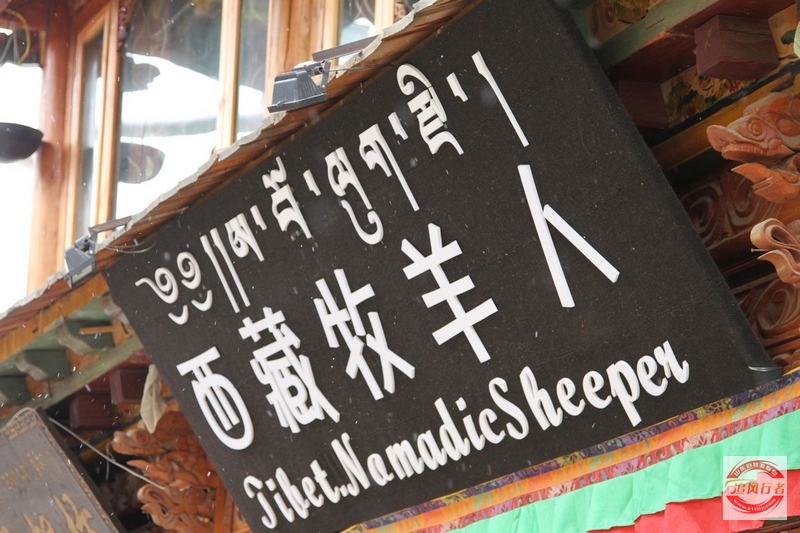 ༄༅།།ས་བོ་ལུག་རྫི་།
西藏牧羊人
Tibet.NamadicSheeper
追风行者